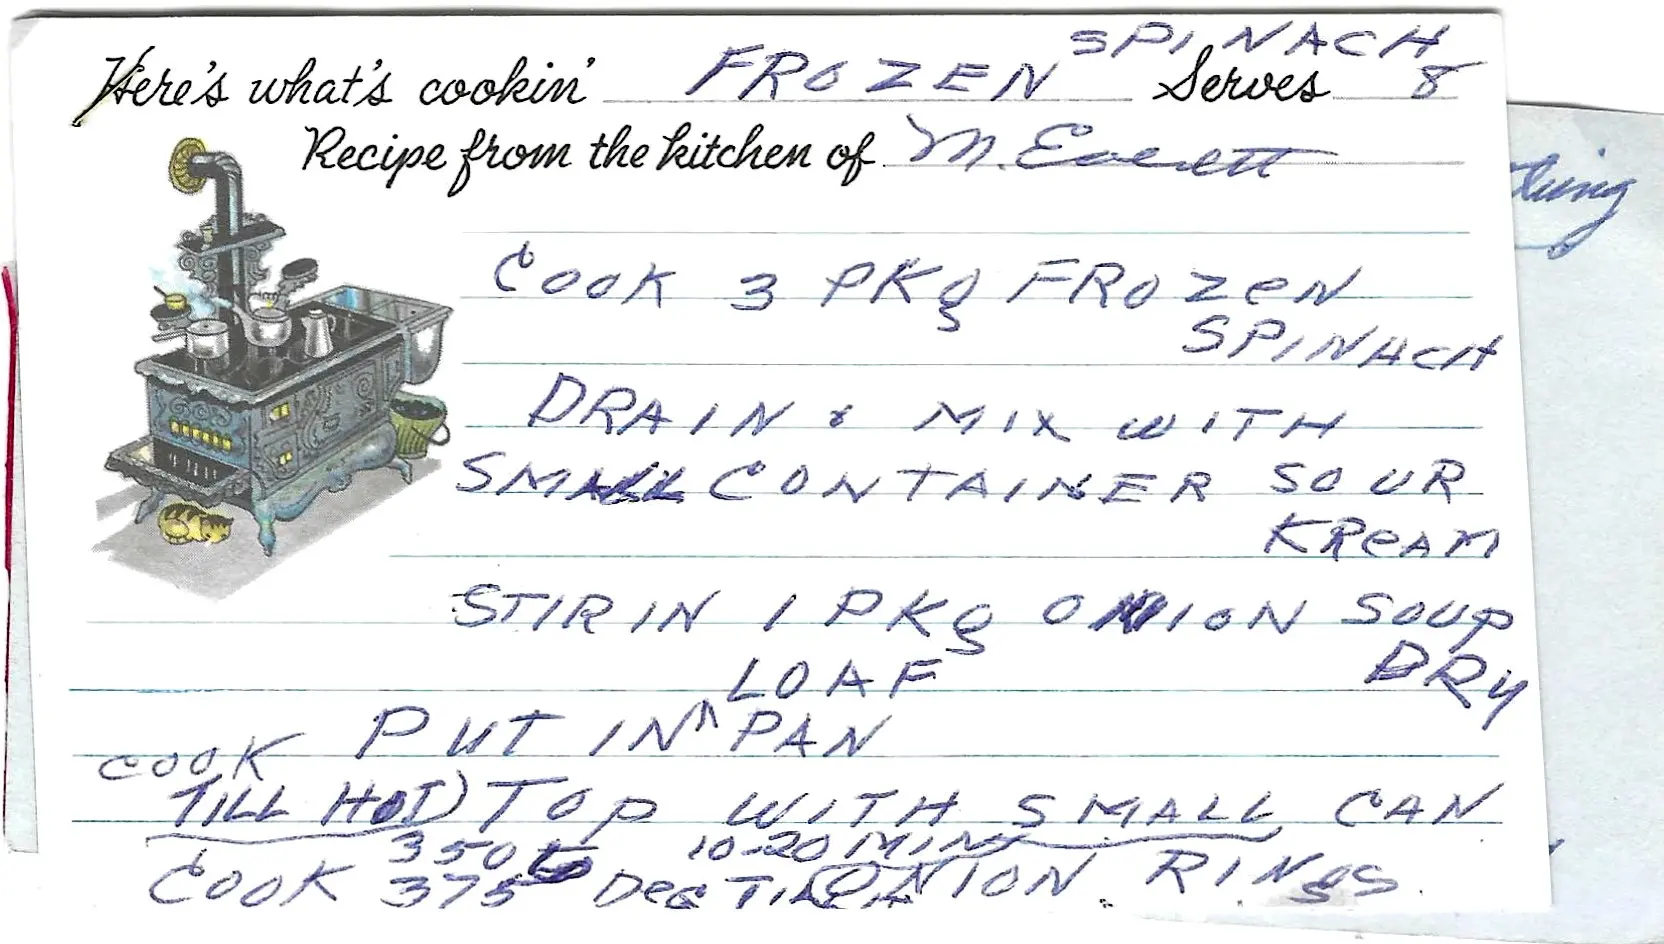 Here's what's cookin' FROZEN SPINACH Serves 8
Recipe from the kitchen of M. Everett
COOK 3 PKg FROZeN
SPINACH
DRAIN & MIX WITH
SMALL CONTAINER SOUR
KReAM
STIR IN 1 PKg ONION SOUP
DRY
LOAF
PUT IN ^ PAN
COOK
TILL HOT) TOP WITH SMALL CAN
350 to 10-20 MINS
COOK 375 Deg ONION RINGS.